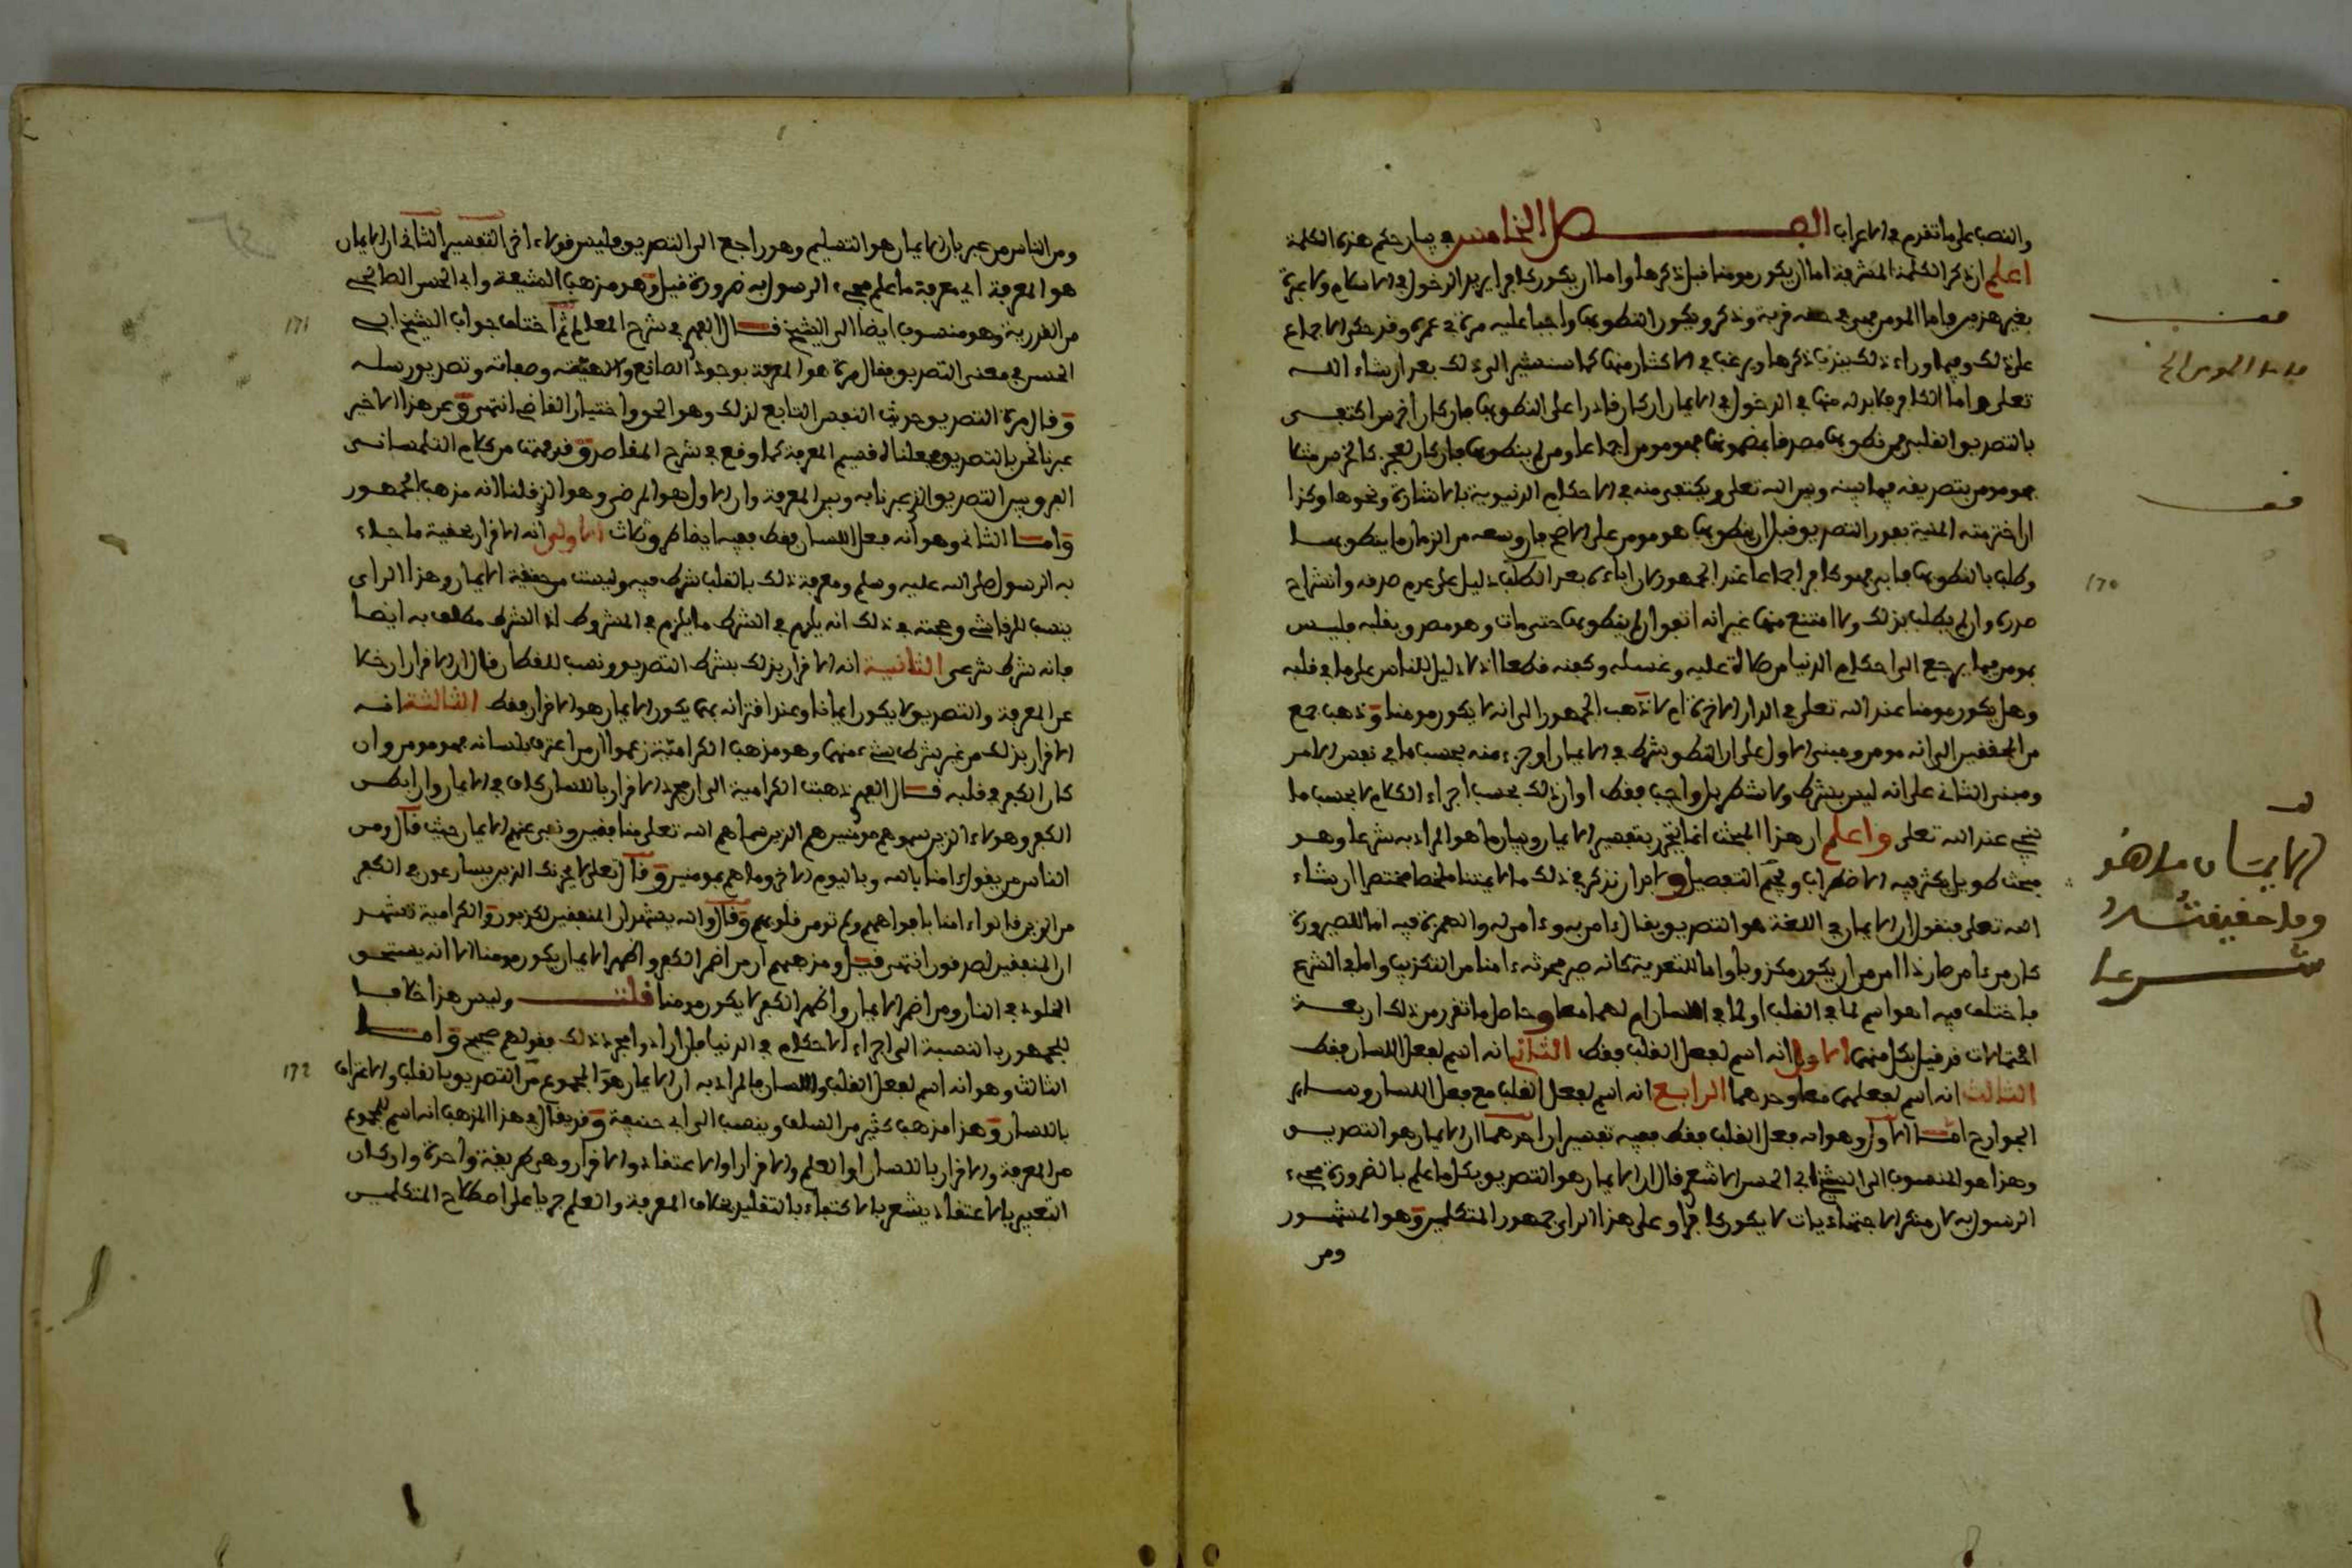 والنصب على ما تقدم في الاعراب الفصل الخامس في بيان حكم هذه الكلمة
اعلم ان ذكر الكلمة المشرفة اما ان يكون مومنا قبل ذكرها واما ان يكون كافرا يريد الدخول في الاسلام ولا عبرة
بغير هذين فاما المومن فهي في حقه قربة وذكر ويكون النطق بها واجبا عليه مرة في عمره وقد حكي الاجماع
على ذلك وفيما وراء ذلك يندب ذكرها ويرغب في الاكثار منها كما سنشير الى ذلك بعد ان شاء الله
تعلى واما الكافر فلا بد له منها في الدخول في الايمان ان كان قادرا على النطق بها فان كان اخرس اكتفي
بالتصديق القلبي فمن نطق بها مصدقا بمضمونها فهو مومن اجماعا ومن لم ينطق بها فان كان لعجز كالخرس مثلا
فهو مومن بتصديقه فيما بينه وبين الله تعلى ويكتفى منه في الاحكام الدنيوية بالاشارة ونحوها وكذا
ان اخترمته المنية بفور التصديق قبل ان ينطق بها هو مومن على الاصح فان وسعه من الزمان ما ينطق بها
وطلب بالنطق بها فابى فهو كافر اجماعا عند الجمهور لان اباءه بعد الطلب دليل على عدم صدقه وانشراح
صدره وان لم يطلب بذلك ولا امتنع منها غير انه اتفق ان لم ينطق بها حتى مات وهو مصدق بقلبه فليس
بمومن فيما يرجع الى احكام الدنيا من صلاة عليه وغسله وكفنه قطعا اذ لا دليل للناس على ما في قلبه
وهل يكون مومنا عند الله تعلى في الدار الاخرة ام لا ذهب الجمهور الى انه لا يكون مومنا وذهب جمع
من المحققين الى انه مومن ومبنى الاول على ان النطق شرط في الايمان او جزء منه بحسب ما في نفس الامر
ومبنى الثاني على انه ليس بشرط ولا شطر بل واجب فقط او ان ذلك بحسب اجراء الكلام لا بحسب ما
ينجي عند الله تعلى واعلم ان هذا المبحث انما يتحرر بتفسير الايمان وبيان ما هو المراد به شرعا وهو
مبحث طويل يكثر فيه الاضطراب ويحتمل التفصيل ولا بد ان نذكر في ذلك ما لا يمتنا ملخصا مختصرا ان شاء
الله تعلى فنقول ان الايمان في اللغة هو التصديق يقال ءامن به وءامن له والهمزة فيه اما للصيرورة
كان من ءامن صار ذا امن من ان يكون مكذوبا واما للتعدية كانه صير محدثه ءامنا من التكذيب واما في الشرع
فاختلف فيه اهو اسم لما في القلب او لما في اللسان ام لهما معا وحاصل ما تقرر من ذلك اربعة
احتمالات قد قيل بكل منها الاول انه اسم لفعل القلب فقط الثاني انه اسم لفعل اللسان فقط
الثالث انه اسم لفعلهما معا وحدهما الرابع انه اسم لفعل القلب مع فعل اللسان وساير
الجوارح اما الاول وهو انه فعل القلب فقط ففيه تفسيران احدهما ان الايمان هو التصديق
وهذا هو المنسوب الى الشيخ ابي الحسن الاشعري قال ان الايمان هو التصديق بكل ما علم بالضرورة مجيء
الرسول به لان منكر الاجتهاديات لا يكون كافرا وعلى هذا الراي جمهور المتكلمين وهو المشهور
ومن
قف
قف
١٧٠
الايمان ما هو
وما حقيقته
شرعا
ومن الناس من عبر بان الايمان هو التسليم وهو راجع الى التصديق وليس قولا اخر التفسير الثاني ان الايمان
هو المعرفة اي معرفة ما علم مجيء الرسول به ضرورة قيل وهو مذهب الشيعة وابي الحسن الصالحي
من القدرية وهو منسوب ايضا الى الشيخ قال الفهري في شرح المعالم ثم اختلف جواب الشيخ ابي
الحسن في معنى التصديق فقال مرة هو المعرفة بوجود الصانع والاهيته وصفاته وتصديق رسله
وقال مرة التصديق حديث النفس التابع لذلك وهو الحق واختيار القاضي انتهى وعن هذا الاخير
عبرنا نحن بالتصديق فجعلناه قسيم المعرفة كما وقع في شرح المقاصد وقد فهمت من كلام التلمساني
الفرق بين التصديق الذي عبرنا به وبين المعرفة وان الاول هو المرضي وهو الذي قلنا انه مذهب الجمهور
واما الثاني وهو انه فعل اللسان فقط ففيه ايضا طرق ثلاث الاولى انه الاقرار بحقية ما جاء
به الرسول صلى الله عليه وسلم ومعرفة ذلك بالقلب شرط فيه وليست من حقيقة الايمان وهذا الراي
ينسب للرقاشي وحجته في ذلك انه يلزم في الشرط ما يلزم في المشروط اذ الشرط مكلف به ايضا
فانه شرط شرعي الثانية انه الاقرار بذلك بشرط التصديق ونسب للقطان قال ان الاقرار ان خلا
عن المعرفة والتصديق لا يكون ايمانا وعند اقترانه بهما يكون الايمان هو الاقرار فقط الثالثة انه
الاقرار بذلك من غير شرط شيء منهما وهو مذهب الكرامية زعموا ان من اعترف بلسانه فهو مومن وان
كان الكفر في قلبه قال الفهري ذهبت الكرامية الى ان مجرد الاقرار باللسان كاف في الايمان وان ابطن
الكفر وهولاء الذين سموهم مومنين هم الذين سماهم الله تعلى منافقين ونفى عنهم الايمان حيث قال ومن
الناس من يقول ءامنا بالله وباليوم الاخر وما هم بمومنين وقال تعلى لا يحزنك الذين يسارعون في الكفر
من الذين قالوا ءامنا بافواههم ولم تومن قلوبهم وقال والله يشهد ان المنفقين لكذبون والكرامية تشهد
ان المنفقين لصدقون انتهى قيل ومذهبهم ان من اضمر الكفر واظهر الايمان يكون مومنا الا انه يستحق
الخلود في النار ومن اضمر الايمان واظهر الكفر لا يكون مومنا قلت وليس هذا خلافا
للجمهور بالنسبة الى اجراء الاحكام في الدنيا فان ارادوا مجرد ذلك فقولهم صحيح واما
الثالث وهو انه اسم لفعل القلب واللسان فالمراد به ان الايمان هو المجموع من التصديق بالقلب والاعتراف
باللسان وهذا مذهب كثير من السلف وينسب الى ابي حنيفة وقد يقال في هذا المذهب انه اسم لمجموع
من المعرفة والاقرار باللسان او العلم والاقرار او الاعتقاد والاقرار وهي طريقة واحدة وان كان
التعبير بالاعتقاد يشعر بالاكتفاء بالتقليد بخلاف المعرفة والعلم جريا على اصطلاح المتكلمين
١٧١
١٧٢